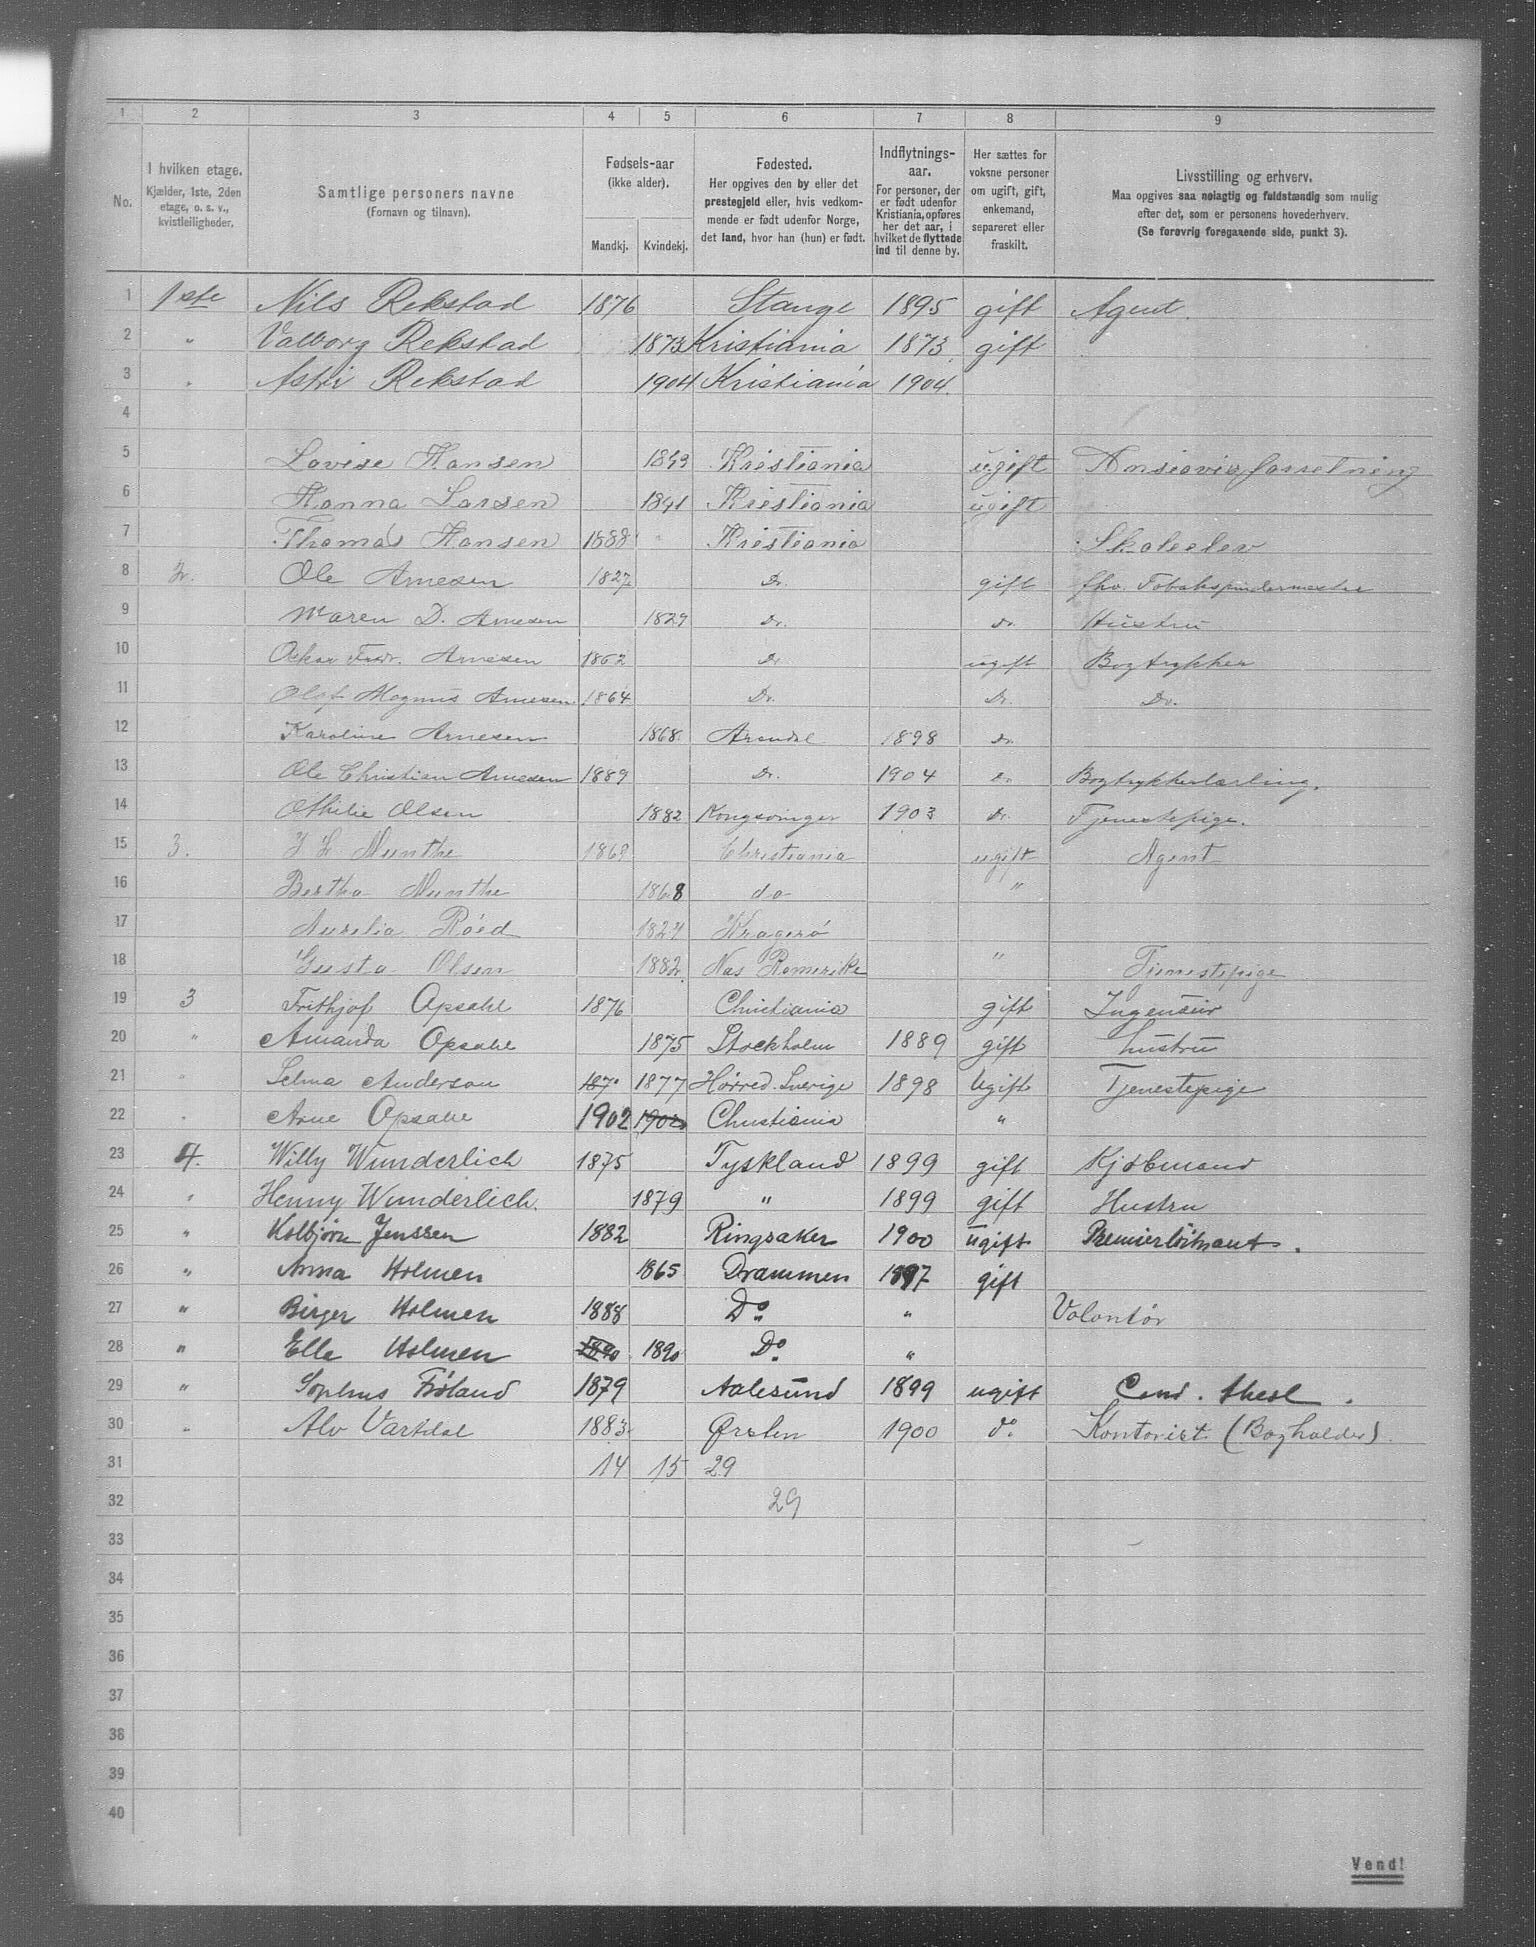 1 2 3 4 5 6 7 8 9
No.
I hvilken etage.
Kjælder, 1ste, 2den etage, o. s. v., kvistleiligheder.
Samtlige personers navne
(Fornavn og tilnavn).
Fødsels-aar
(ikke alder).
Mandkj. Kvindekj.
Fødested.
Her opgives den by eller det prestegjeld eller, hvis vedkommende er født udenfor Norge, det land, hvor han (hun) er født.
Indflytnings-aar.
For personer, der er født udenfor Kristiania, opføres her det aar, i hvilket de flyttede ind til denne by.
Her sættes for voksne personer om ugift, gift, enkemand, separeret eller fraskilt.
Livsstilling og erhverv.
Maa opgives saa nøiagtig og fuldstændig som mulig efter det, som er personens hovederhverv.
(Se forøvrig foregaaende side, punkt 3).
1 1ste Nils Rekstad 1876 Stange 1895 gift Agent.
2 " Valborg Rekstad 1873 Kristiania 1873 gift
3 " Astri Rekstad 1904 Kristiania 1904.
4
5 Lovise Hansen 1849 Kristiania ugift
6 Hanna Larsen 1891 Kristiania ugift
7 Thomas Hansen 1888 Kristiania Skoleelev
8 2. Ole Arnesen 1827 Do. gift fhv. Tobakspindermester
9 Maren D. Arnesen 1829 Do. do. Hustru
10 Oskar Fredr. Arnesen 1862 Do ugift Bogtrykker
11 Olaf Magnus Arnesen 1864 Do. Do. Do.
12 Karoline Arnesen 1868 Arendal 1898 do.
13 Ole Christian Arnesen 1889 Do. 1904 do Bogtrykkerlærling.
14 Othilie Olsen 1882 Kongsvinger 1903 do. Tjenestepige.
15 3. Munthe 1869 Christiania ugift Agent
16 Bertha Munthe 1868 do "
17 Aurelia Röed 1827 Kragerö
18 Gusta Olsen 1882 Næs Romerike " Tjenestepige
19 3 Frithjof Opsahl 1876 Christiania gift Ingeniør
20 " Amanda Opsahl 1875 Stockholm 1889 gift hustru
21 " Selma Anderson 187 1877 Hørred. Sverige 1898 Ugift Tjenestepige
22 " Arne Opsahl 1902 1902 Christiania "
23 4. Willy Wunderlich 1875 Tyskland 1899 gift Kjøbmand
24 " Henny Wunderlich. 1879 " 1899 gift Hustru
25 " Kolbjørn Jenssen 1882 Ringsaker 1900 ugift Premierløitnant.
26 " Anna Holmen 1865 Drammen 1897 gift
27 " Birger Holmen 1888 Do " Volontør
28 " Ella Holmen 1890 1890 Do "
29 " Sophus Frøland 1879 Aalesund 1899 ugift Cand. theol.
30 " Alv Vartdal 1883 Ørsten 1900 do. Kontorist (Bogholder).
31 14 15 29
32 29
33
34
35
36
37
38
39
40
Vend!